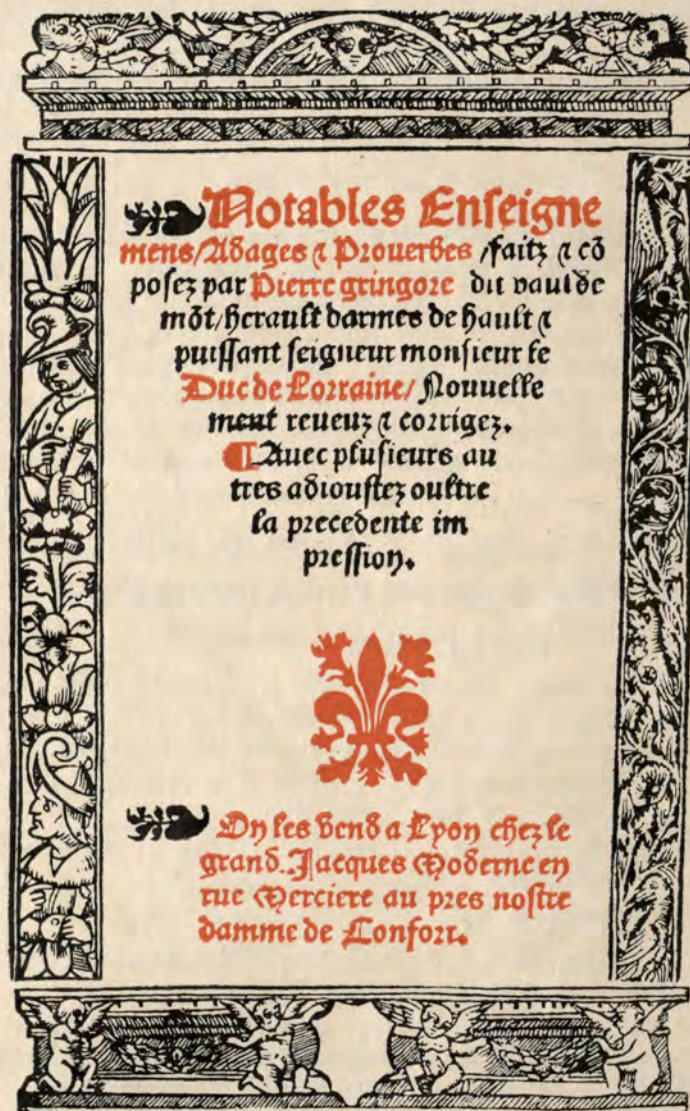 Notables Enseigne
mens/Adages ⁊ Prouerbes /faitz ⁊ cō
posez par Pierre gringore dit vaulde
mōt/herault darmes de hault ⁊
puissant seigneur monsieur le
Duc de Lorraine/ Nouuelle
ment reueuz ⁊ corrigez.
¶Auec plusieurs au
tres adioustez oultre
la precedente im
pression.
On les vend a Lyon chez le
grand. Jacques Moderne en
rue Merciere au pres nostre
damme de Confort.